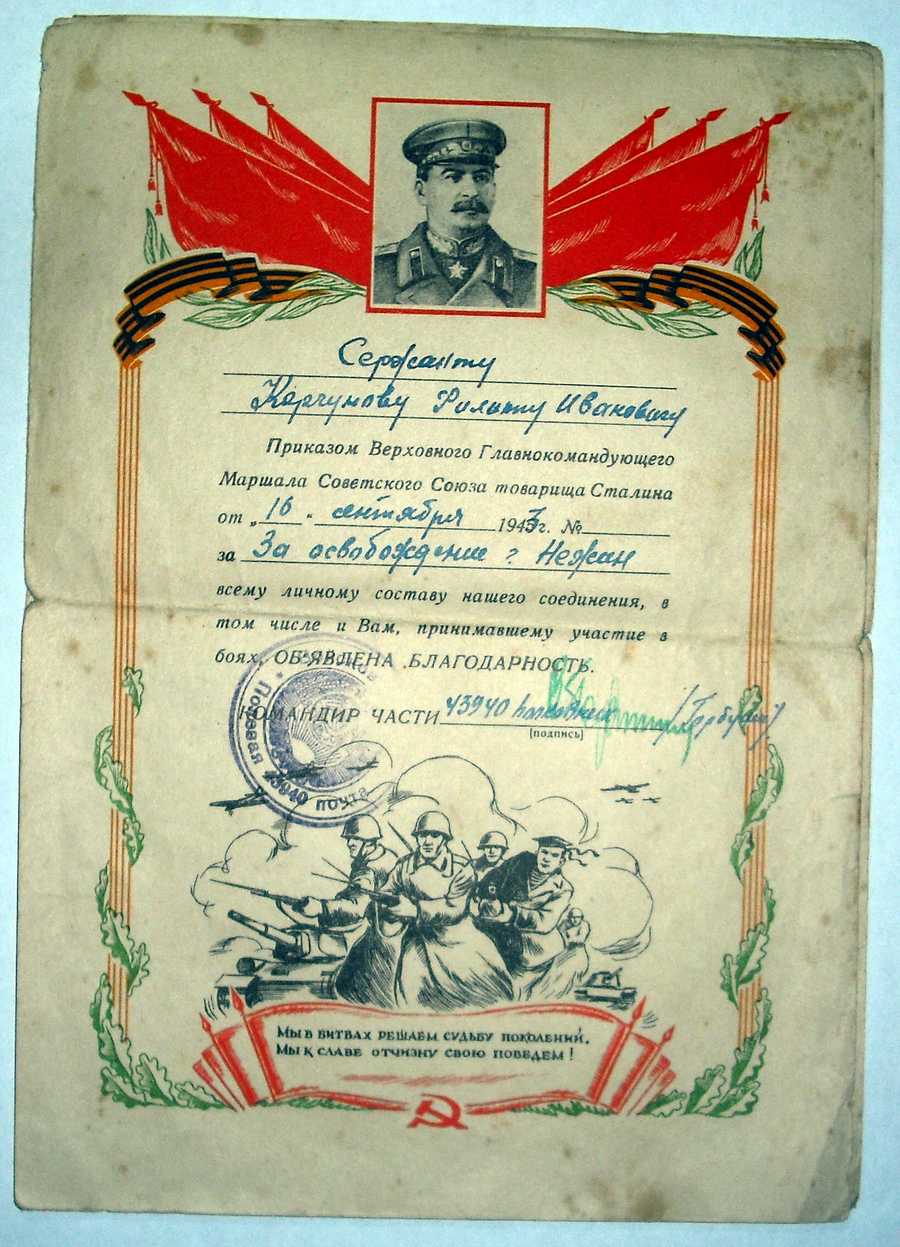 Сержанту
Корчунову Филипу Ивановичу
Приказом Верховного Главнокомандующего
Маршала Советского Союза товарища Сталина
от „16" сентября 1943г. №
за За освобождение г Нежин
всему личному составу нашего соединения, в
том числе и Вам, принимавшему участие в
боях, ОБ'ЯВЛЕНА БЛАГОДАРНОСТЬ.
КОМАНДИР ЧАСТИ 43940 полковник
(подпись)
Полевая почта 43940
МЫ В БИТВАХ РЕШАЕМ СУДЬБУ ПОКОЛЕНИЙ,
МЫ К СЛАВЕ ОТЧИЗНУ СВОЮ ПОВЕДЕМ!